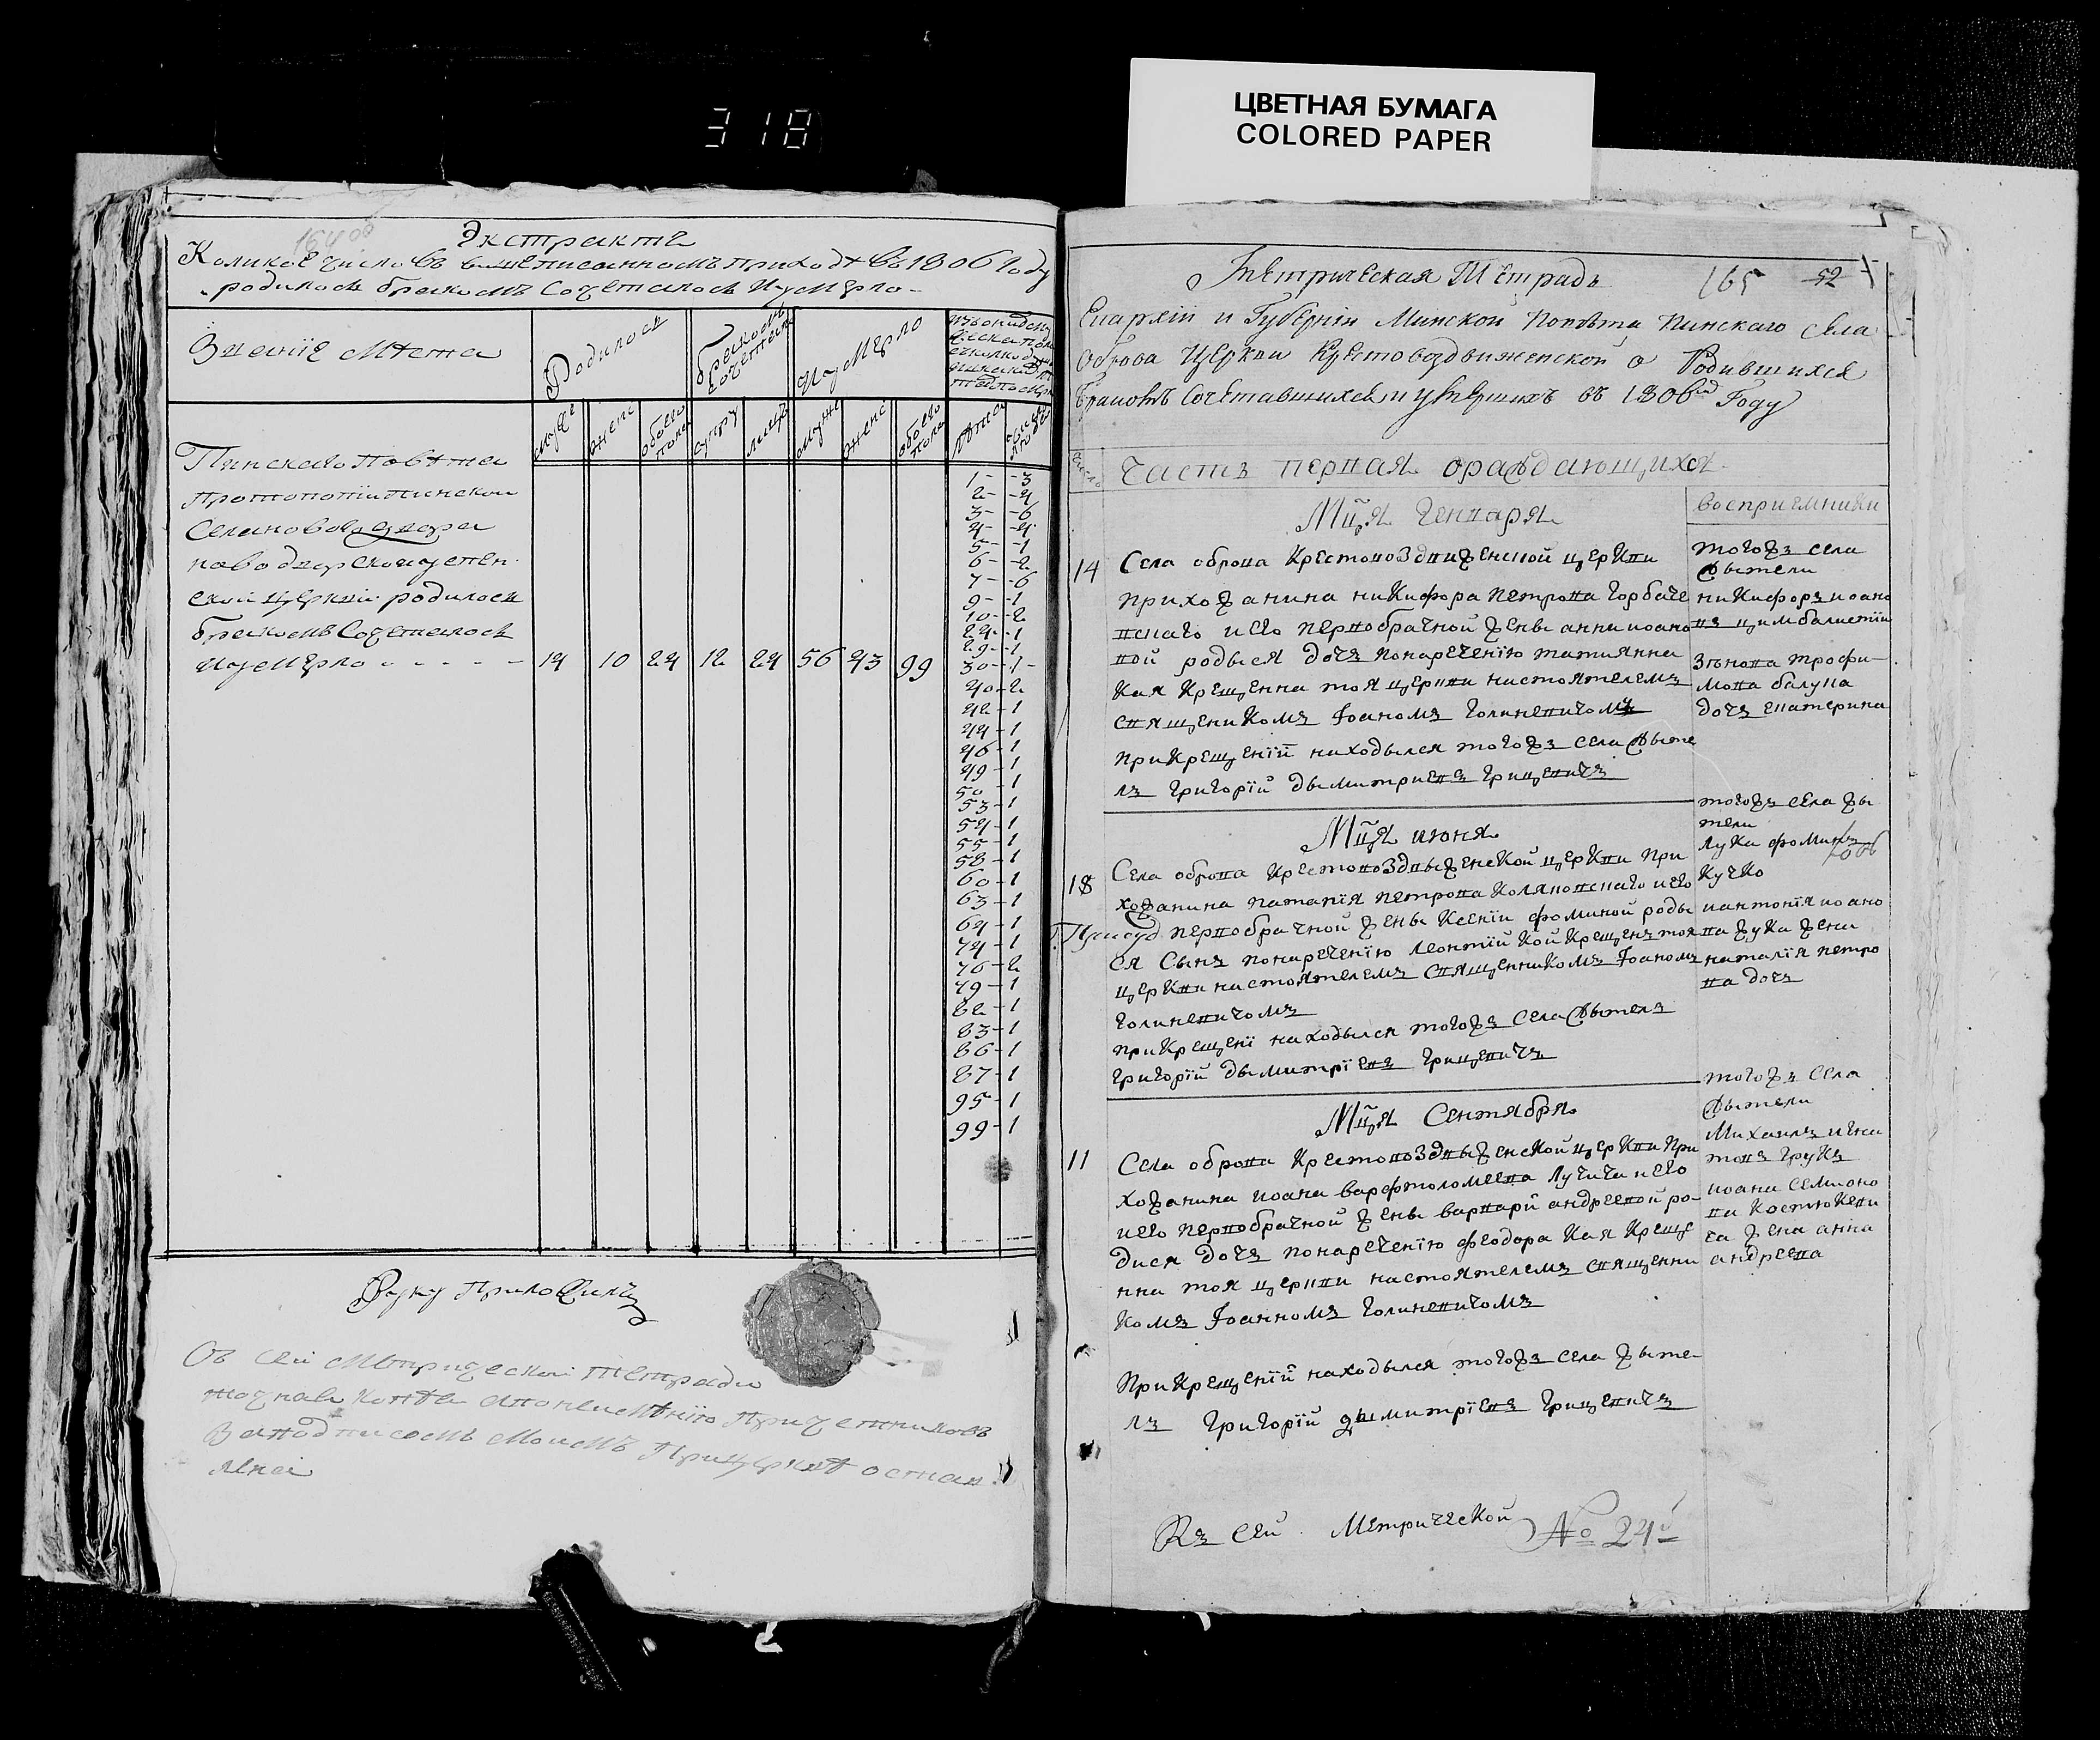 318
ЦВЕТНАЯ БУМАГА
COLORED PAPER
Экстрактъ
Коликое число въ вышеписанномъ приходѣ въ 1806 году
родилось бракомъ сочеталось и умерло
Званіе мѣста
Родилось
бракомъ сочеталось
и умерло
муж
женс
обоего пола
супру
лицъ
муже
женс
обоего пола
лѣта
Пинскаго Повѣта
Протопопіи Пинской
Села новодвора
новодворской успен
ской церкви родилось
бракомъ Сочеталось
и умерло - - - - - 14 10 24 12 24 56 43 99
1 - 3
2 - 4
3 - 6
4 - 4
5 - 1
6 - 2
7 - 6
9 - 1
10 - 2
24 - 1
29 - 1
30 - 1
40 - 2
42 - 1
44 - 1
46 - 1
49 - 1
50 - 1
53 - 1
54 - 1
55 - 1
58 - 1
60 - 1
63 - 1
64 - 1
74 - 1
76 - 2
79 - 1
82 - 1
83 - 1
86 - 1
87 - 1
95 - 1
99 - 1
Руку Приложилъ
Съ сей Метрической Тетради
точная копія
за подписомъ моимъ при церквѣ остав
лена
Метрическая Тетрадь
165 52
Епархіи и Губерніи Минской Повѣта Пинскаго Села
Оброва Церкви Крестовоздвиженской о Родившихся
Бракомъ Сочетавшихся и умершихъ въ 1806м Году
число
Часть первая о раждающихся
Мца Генваря
восприемники
14
Села оброва Крестовоздвиженской церкви
прихожанина никифора петрова Горбаче
вскаго и его первобрачной жены анны иоано
вой родыся дочь понаречению татиянна
кая крещенна тоя церкви настоятелемъ
священикомъ Иоаномъ Голиневичомъ
при крещений находылся тогожъ села жыте
ль Григорій дымитриевъ Грицевичъ
тогожъ села
жытели
никифоръ иоано
въ цимбалистый
трофи
мова балуна
дочь екатерина
Мца июня
18
Села оброва Крестовоздвыженской церкви при
хожанина патапия петрова Коляновскаго и его
первобрачной жены Ксении фоминой роды
ся сынъ понаречению леонтий кой крещенъ тоя
церкви настоятелемъ священникомъ Иоаномъ
Голиневичомъ
при крещені находылся тогожъ села жытель
Григорій дымитріевъ Грицевичъ
тогожъ села жы
тели
лука фоминъ
Кучко
и антония иоано
ва жука жена
наталія петро
ва дочь
Мца Сентября
11
Села оброва Крестовоздвыженской церкви при
хожанина иоана варфтоломеева Лучича и его
и его первобрачной жены варвары андреевой ро-
дися дочь понаречению феодора кая креще
нна тоя церкви настоятелемъ священни
комъ Иоанномъ Голиневичомъ
При крещеній находылся тогожъ села жыте-
ль Григорій дымитріевъ Грицевичъ
тогожъ села
жытели
Михаилъ игна
товъ грукъ
иоана семионо
ва костюкеви
ча жена анна
андреева
Къ сей Метрической
№ 24й